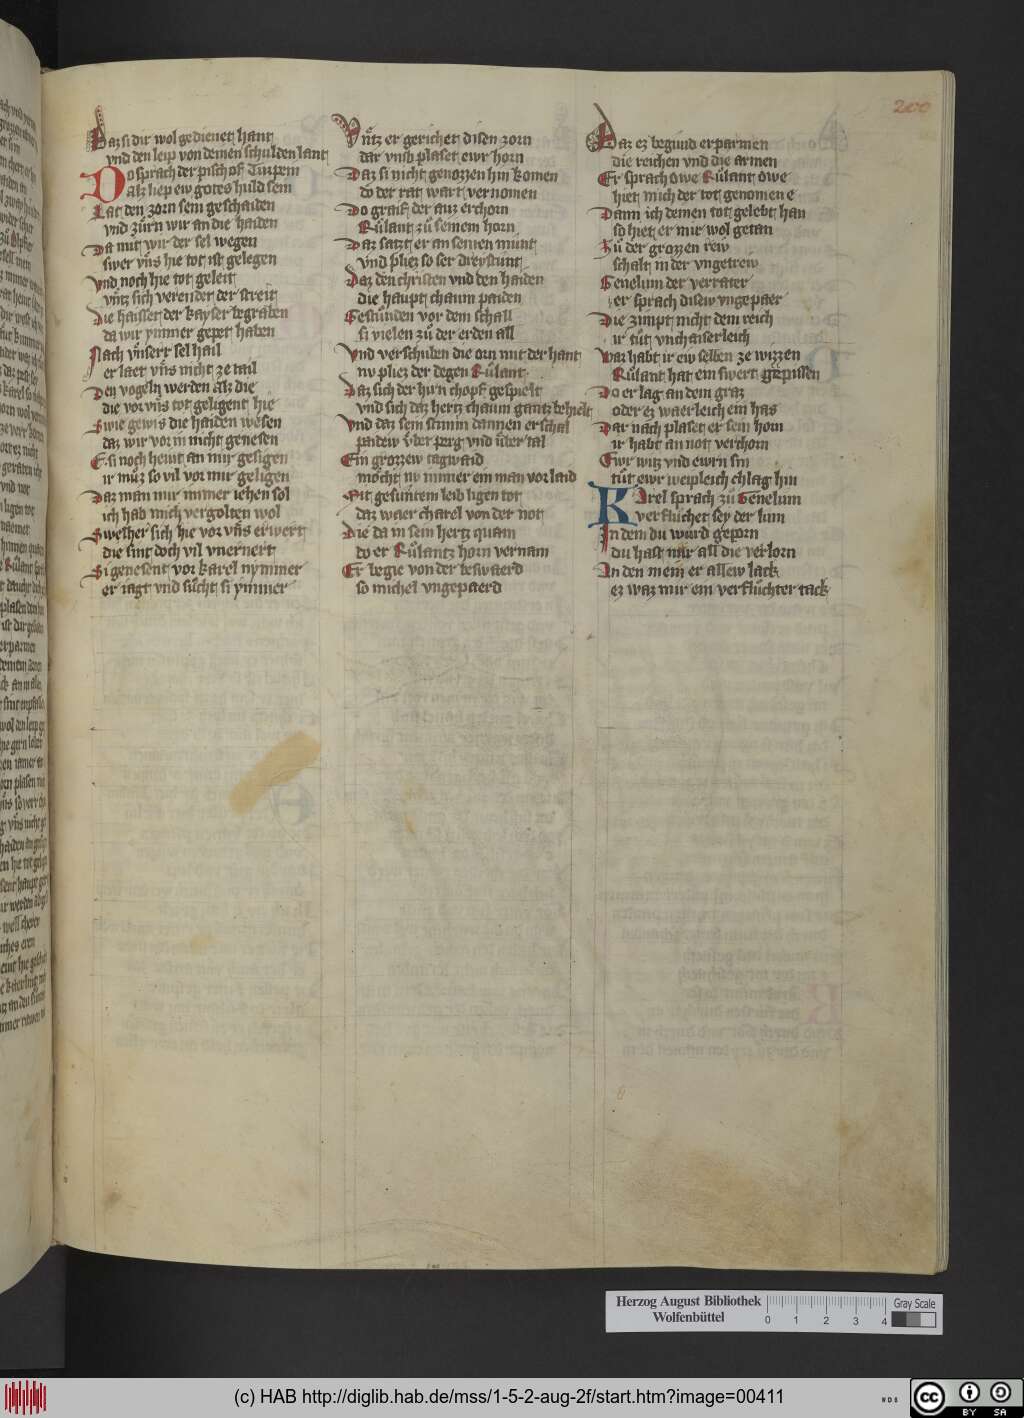 200
Daz si dir wol gedienet hant
vnd den leip von deinen schulden lant
Do sprach der pischof Turpein
Alz liep ew gotes huld sein
Lat den zorn sein geschaiden
vnd zürn wir an die haiden
Da mit wir der sel wegen
swer vns hie tot ist gelegen
Vnd noch hie tot geleit
vntz sich verendet der streit
Die haisset der kayser begraben
da wir ymmer gepet haben
Nach vnserr sel hail
er laet vns nicht ze tail
Den vogeln werden alz die
die vor vns tot geligent hie
Swie gewis die haiden wesen
daz wir vor in nicht genesen
E si noch heint an mir gesigen
ir müz so vil vor mir geligen
Daz man mir immer iehen sol
ich hab mich vergolten wol
Swelher sich hie vor vns erwert
die sint doch vil vnernert
Si genesent vor karel nymmer
er iagt vnd sücht si ymmer
Vntz er gerichet disen zorn
dar vmb plaset ewr horn
Daz si nicht genozzen hin komen
do der rat wart vernomen
Do graif der auz erchorn
Rulant zu seinem horn
Daz satzt er an seinen munt
vnd pliez so ser dreystunt
Daz den christen vnd den haiden
die haupt chaum paiden
Gestunden vor dem schall
si vielen zu der erden all
Vnd verschuben die orn mit der hant
nv pliez der degen Rulant
Daz sich der hirn chopf gespielt
vnd sich daz hertz chaum gantz behielt
Vnd daz sein stimm dannen erschal
paidew vber perg vnd vber tal
Ein grozzew tagwaid
mocht nv nimmer ein man vor laid
Mit gesuntem leib ligen tot
daz waer charel von der not
Die da in sein hertz quam
do er Rulantz horn vernam
Er begie von der beswaerd
so michel vngepaerd
Daz ez begund erparmen
die reichen vnd die armen
Er sprach owe Rulant owe
hiet mich der tot genomen e
Dann ich deinen tot gelebt han
so hiet er mir wol getan
Zu der grozzen rew
schalt in der vngetrew
Genelun der verrater
er sprach disew vngepaer
Die zimpt nicht dem reich
ir tut vnchaiserleich
Waz habt ir ew selben ze wizzen
Rulant hat ein swert gepissen
Do er lag an dem graz
oder ez waerleich ein has
Dar nach plaset er sein horn
ir habt an not verchorn
Ewr witz vnd ewrn sin
tut ewr weipleich chlag hin
Karel sprach zu Genelun
verfluchet sey der lun
In dem du wurd geporn
du hast mir all die verlorn
An den mein er allew lack
ez waz mir ein verfluchter tack
Herzog August Bibliothek
Wolfenbüttel
0 1 2 3 4
Gray Scale
(c) HAB http://diglib.hab.de/mss/1-5-2-aug-2f/start.htm?image=00411
CC BY SA